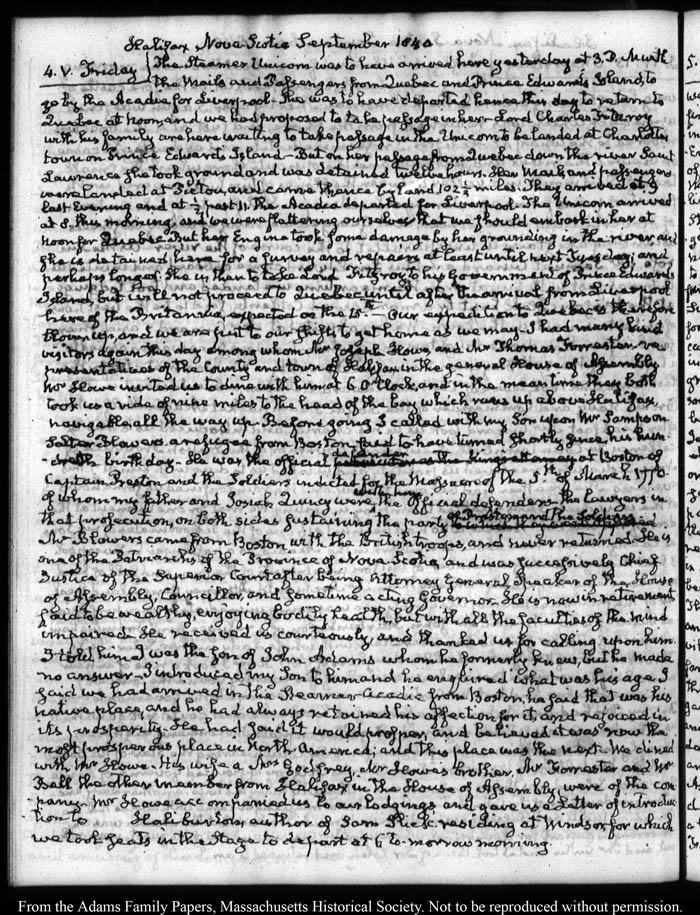 Halifax Nova Scotia September 1840
4. V. Friday The Steamer Unicorn was to have arrived here yesterday at 3. P.M. with
the Mails and Passengers from Quebec and Prince Edwards Island, to
go by the Acadia for Liverpool. She was to have departed hence this day to return to
Quebec at noon, and we had proposed to take passage in her. Lord Charles Fitzroy
with his family are here waiting to take passage in the Unicorn to be landed at Charlotte
town on Prince Edwards Island. But on her passage from Quebec down the river Saint
Lawrence she took ground and was detained twelve hours. Her Mails and passengers
were landed at Pictou, and came thence by land. 102½ miles. They arrived at 9
last Evening and at ½ past 11. the Acadia departed for Liverpool. The Unicorn arrived
at 8. this morning, and we were flattering ourselves that we should embark in her at
noon for Quebec. But her Engine took some damage by her grounding in the river, and
she is detained here for a survey and repairs at least until next Tuesday, and
perhaps longer. She is then to take Lord Fitzroy to his Government of Prince Edwards
Island, but will not proceed to Quebec until after the arrival from Liverpool
here of the Britannia, expected on the 15th. Our expedition to Quebec is therefore
blown up, and we are put to our shifts to get home as we may. I had many kind
visitors again this day among whom Mr Joseph Howe, and Mr Thomas Forrester re-
presentatives of the County and town of Halifax in the general House of Assembly
Mr Howe invited us to dine with him at 6 O'Clock, and in the mean time they both
took us a ride of nine miles to the head of the bay which runs up above Halifax,
navigable all the way up. Before going I called with my Son upon Mr Sampson
Salter Blowers a refugee from Boston, said to have turned shortly since his hun-
dredth birth day. He was the official defender at Boston of
Captain Preston and the Soldiers indicted for the Massacre of the 5th of March 1770
of whom my father and Josiah Quincy were with him the Official defenders the Lawyers in
that prosecution, on both sides sustaining the party of Preston and the Soldiers
Mr Blowers came from Boston with the British troops, and never returned. He is
one of the Patriarchs of the Province of Nova Scotia and was successively Chief
Justice of the Superior Court after being Attorney General, Speaker of the House
of Assembly, Councillor, and sometime acting Governor. He is now in retirement
said to be wealthy, enjoying bodily health, but with all the faculties of the mind
impaired. He received us courteously, and thanked us for calling upon him.
I told him I was the Son of John Adams whom he formerly knew, but he made
no answer. I introduced my Son to him and he enquired what was his age. I
said we had arrived in the Steamer Acadia from Boston, he said that was his
native place, and he had always retained his affection for it, and rejoiced in
its prosperity. He had said it would prosper, and believed it was now the
most prosperous place in North America; and this place was the next. We dined
with Mr Howe. His wife a Mrs Godfrey, Mr Howe's brother, Mr Forrester and Mr
Bell the other member from Halifax in the House of Assembly, were of the com-
pany. Mr Howe accompanied us to our lodgings and gave us a Letter of introduc-
tion to Haliburton, author of Sam Slick. residing at Windsor, for which
we took seats in the Stage to depart at 6 to-morrow morning.
From the Adams Family Papers, Massachusetts Historical Society. Not to be reproduced without permission.